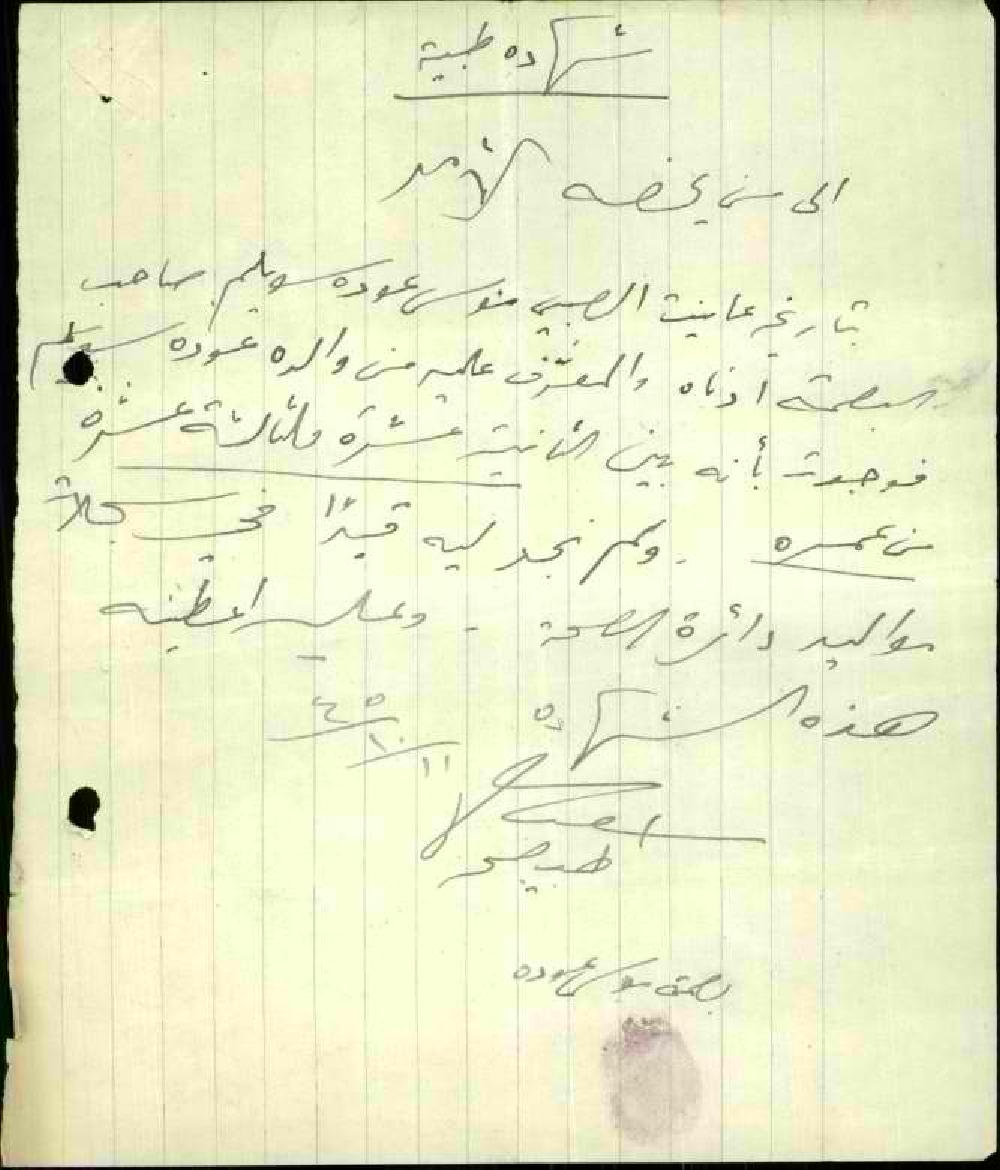 شهاده طبية
الى من يخصه الأمر
بتاريخه عاينت الصبي موسى عوده سويلم صاحب
البصمة ادناه والمعرّف عليه من والده عوده سويلم
فوجدت بأنه بين الثانية عشرة والثالثة عشرة
من عمره . ولم نجد ليه قيدًا في سجلات
مواليد دائرة الصحة - وعليه اعطيته
هذه الشهاده
١١/١٠/٤٥
طبيب صحة
بصمة موسى عوده